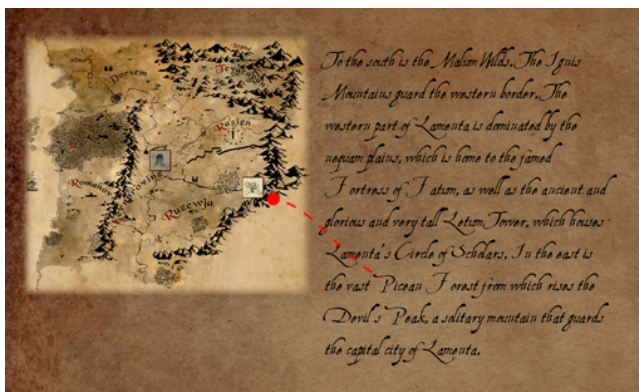 Dorsem
Ruslen
Romanov
Ruzewja
To the south is the Malum Wilds. The Ignis
Mountains guard the western border. The
western part of Lamenta is dominated by the
nequam plains, which is home to the famed
Fortress of Fatum, as well as the ancient and
glorious and very tall Letum Tower, which houses
Lamenta's Circle of Scholars. In the east is
the vast Picean Forest from which rises the
Devil's Peak, a solitary mountain that guards
the capital city of Lamenta.